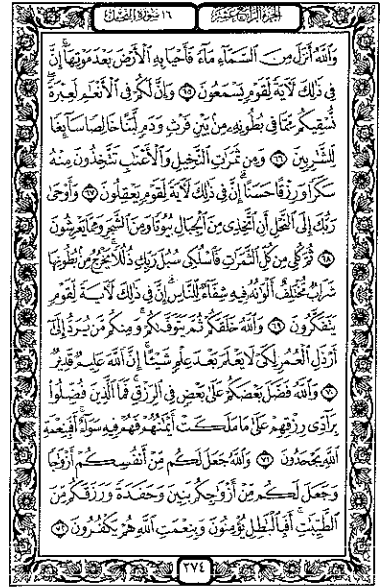 الجزء الرابع عشر
١٦ سورة النحل
وَٱللَّهُ أَنزَلَ مِنَ ٱلسَّمَآءِ مَآءً فَأَحْيَا بِهِ ٱلْأَرْضَ بَعْدَ مَوْتِهَآ إِنَّ
فِى ذَٰلِكَ لَـَٔايَةً لِّقَوْمٍ يَسْمَعُونَ ٦٥ وَإِنَّ لَكُمْ فِى ٱلْأَنْعَـٰمِ لَعِبْرَةً
نُّسْقِيكُم مِّمَّا فِى بُطُونِهِۦ مِنۢ بَيْنِ فَرْثٍ وَدَمٍ لَّبَنًا خَالِصًا سَآئِغًا
لِّلشَّـٰرِبِينَ ٦٦ وَمِن ثَمَرَٰتِ ٱلنَّخِيلِ وَٱلْأَعْنَـٰبِ تَتَّخِذُونَ مِنْهُ
سَكَرًا وَرِزْقًا حَسَنًا إِنَّ فِى ذَٰلِكَ لَـَٔايَةً لِّقَوْمٍ يَعْقِلُونَ ٦٧ وَأَوْحَىٰ
رَبُّكَ إِلَى ٱلنَّحْلِ أَنِ ٱتَّخِذِى مِنَ ٱلْجِبَالِ بُيُوتًا وَمِنَ ٱلشَّجَرِ وَمِمَّا يَعْرِشُونَ
٦٨ ثُمَّ كُلِى مِن كُلِّ ٱلثَّمَرَٰتِ فَٱسْلُكِى سُبُلَ رَبِّكِ ذُلُلًا يَخْرُجُ مِنۢ بُطُونِهَا
شَرَابٌ مُّخْتَلِفٌ أَلْوَٰنُهُۥ فِيهِ شِفَآءٌ لِّلنَّاسِ إِنَّ فِى ذَٰلِكَ لَـَٔايَةً لِّقَوْمٍ
يَتَفَكَّرُونَ ٦٩ وَٱللَّهُ خَلَقَكُمْ ثُمَّ يَتَوَفَّىٰكُمْ وَمِنكُم مَّن يُرَدُّ إِلَىٰٓ
أَرْذَلِ ٱلْعُمُرِ لِكَىْ لَا يَعْلَمَ بَعْدَ عِلْمٍ شَيْـًٔا إِنَّ ٱللَّهَ عَلِيمٌ قَدِيرٌ
٧٠ وَٱللَّهُ فَضَّلَ بَعْضَكُمْ عَلَىٰ بَعْضٍ فِى ٱلرِّزْقِ فَمَا ٱلَّذِينَ فُضِّلُوا۟
بِرَآدِّى رِزْقِهِمْ عَلَىٰ مَا مَلَكَتْ أَيْمَـٰنُهُمْ فَهُمْ فِيهِ سَوَآءٌ أَفَبِنِعْمَةِ
ٱللَّهِ يَجْحَدُونَ ٧١ وَٱللَّهُ جَعَلَ لَكُم مِّنْ أَنفُسِكُمْ أَزْوَٰجًا
وَجَعَلَ لَكُم مِّنْ أَزْوَٰجِكُم بَنِينَ وَحَفَدَةً وَرَزَقَكُم مِّنَ
ٱلطَّيِّبَـٰتِ أَفَبِٱلْبَـٰطِلِ يُؤْمِنُونَ وَبِنِعْمَتِ ٱللَّهِ هُمْ يَكْفُرُونَ ٧٢
٢٧٤